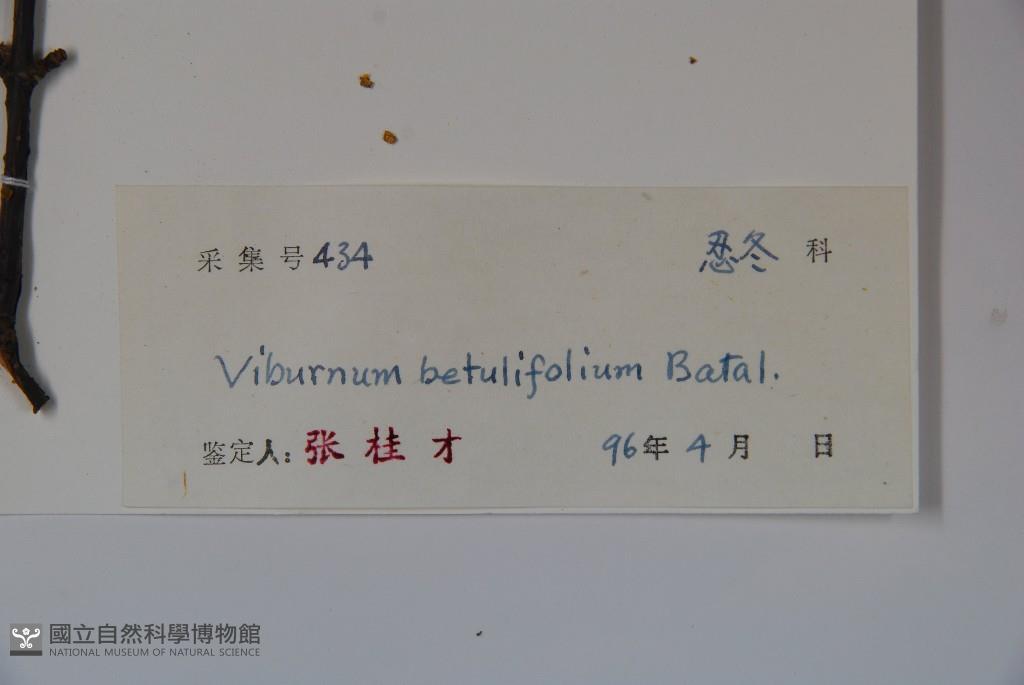 采集号 434 忍冬 科
Viburnum betulifolium Batal.
鉴定人: 张桂才 96年 4月 日
國立自然科學博物館
NATIONAL MUSEUM OF NATURAL SCIENCE